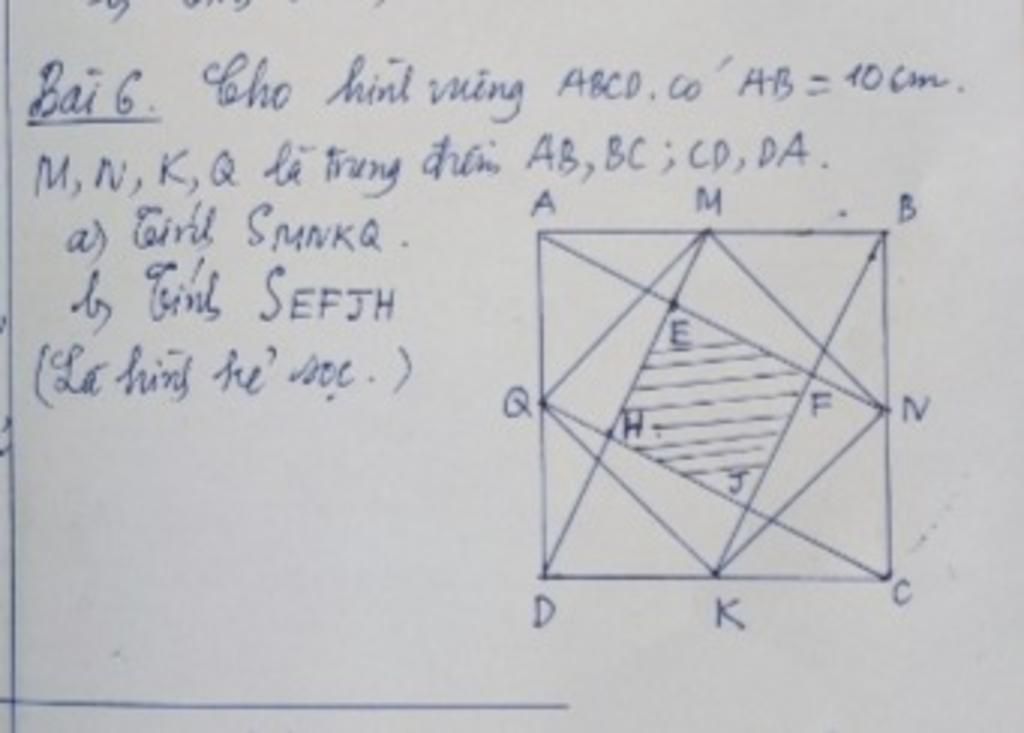 Bài 6. Cho hình vuông ABCD. có AB = 10cm.
M, N, K, Q là trung điểm AB, BC; CD, DA.
a) Tính SMNKQ.
b) Tính SEFJH
(Là hình kẻ sọc.)
A M B
E
Q H F N
J
D K C